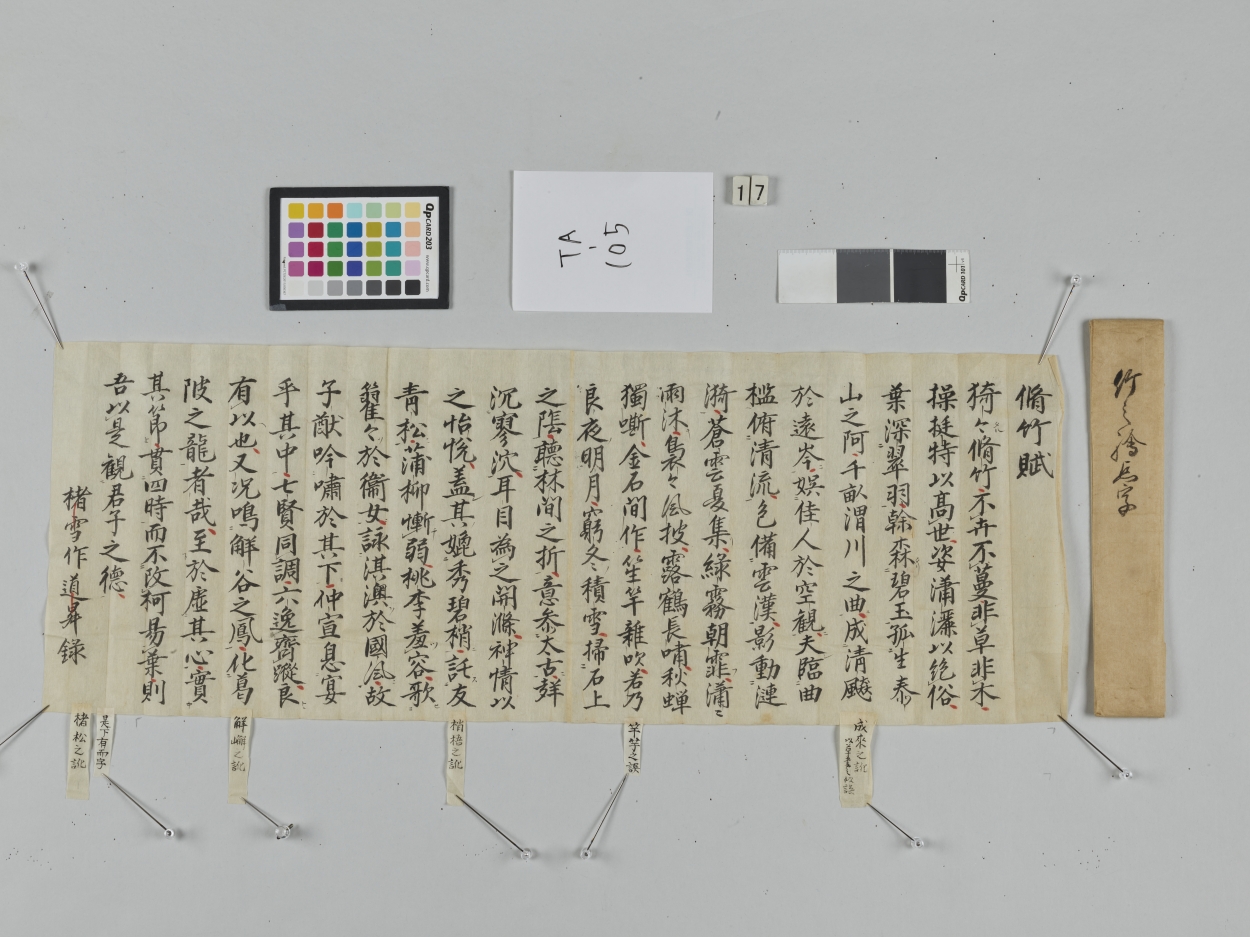 脩竹賦
猗々脩竹不卉不蔓非草非木
操挺特以髙世姿瀟灑以絶俗
葉深翠羽幹森碧玉孤生泰
山之阿千畝渭川之曲成清飈
於遠岑娯佳人於空観夫臨曲
檻俯清流色備雲漢影動漣
漪蒼雲夏集緑霧朝霏瀟々
雨沐裊々風披露鶴長嘯秋蟬
獨嘶金石間作笙竿雜吹若乃
良夜明月窮冬積雪掃石上
之蔭聽林間之折意叅太古聲
沉寥泬耳目為之開滌神情以
之怡悅盖其媲秀碧梢託友
青松蒲柳慚弱桃李羞容歌
籊々於衞女詠淇澳於國風故
子猷吟嘯於其下仲宣息宴
乎其中七賢同調六逸齊蹤良
有以也又况鳴解谷之鳳化葛
陂之龍者哉至於虚其心實
其節貫四時而不改柯易葉則
吾以是観君子之德
楮雪作道昇録
成來之訛
竿竽之誤
梢梧之訛
解嶰之訛
吴下有而字
楮松之訛
TA
105
17
QpCARD 203
www.qpcard.com
QpCARD 101